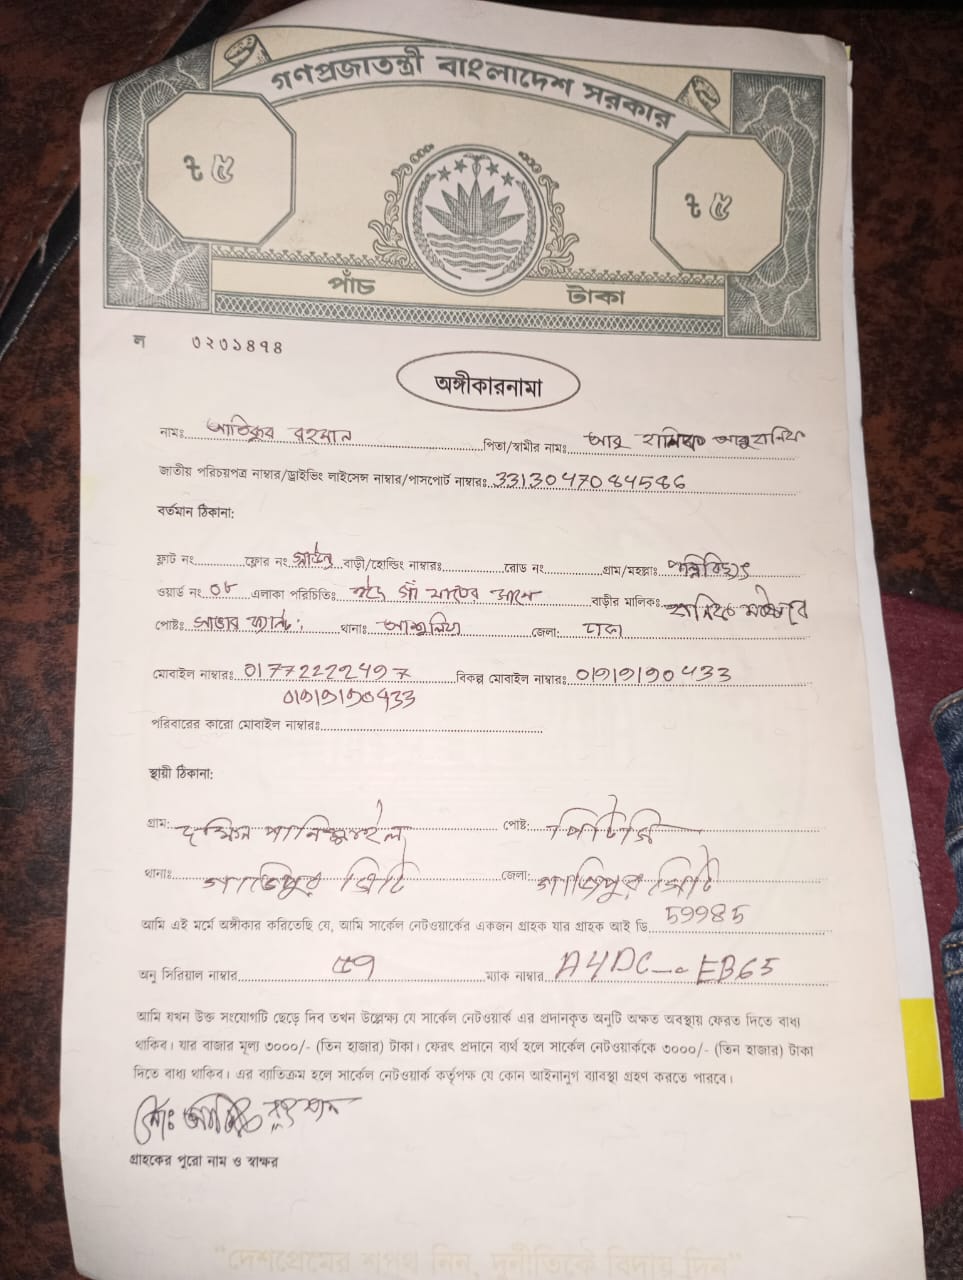 গণপ্রজাতন্ত্রী বাংলাদেশ সরকার
৳ ৫ ৳ ৫
পাঁচ টাকা
ল ৩২৩১৪৭৪
অঙ্গীকারনামা
নামঃ আতিকুর রহমান পিতা/স্বামীর নামঃ আবু হানিফ
জাতীয় পরিচয়পত্র নাম্বার/ড্রাইভিং লাইসেন্স নাম্বার/পাসপোর্ট নাম্বারঃ 3313047084586
বর্তমান ঠিকানা:
ফ্লাট নং ফ্লোর নং বাড়ী/হোল্ডিং নাম্বারঃ রোড নং গ্রাম/মহল্লাঃ পল্লিবিদ্যুৎ
ওয়ার্ড নং ০৮ এলাকা পরিচিতিঃ মাঠের বাড়ীর মালিকঃ
পোষ্টঃ সাভার ক্যান্টঃ থানাঃ আশুলিয়া জেলা: ঢাকা
মোবাইল নাম্বারঃ 01772222497 বিকল্প মোবাইল নাম্বারঃ 01919190433
01919190433
পরিবারের কারো মোবাইল নাম্বারঃ
স্থায়ী ঠিকানা:
গ্রাম: দক্ষিন পানিশাইল পোষ্ট:
থানাঃ গাজিপুর সিটি জেলা: গাজিপুর সিটি
আমি এই মর্মে অঙ্গীকার করিতেছি যে, আমি সার্কেল নেটওয়ার্কের একজন গ্রাহক যার গ্রাহক আই ডি 59985
অনু সিরিয়াল নাম্বার ৫9 ম্যাক নাম্বার A4DC EB65
আমি যখন উক্ত সংযোগটি ছেড়ে দিব তখন উল্লেক্ষ্য যে সার্কেল নেটওয়ার্ক এর প্রদানকৃত অনুটি অক্ষত অবস্থায় ফেরত দিতে বাধ্য
থাকিব। যার বাজার মূল্য ৩০০০/- (তিন হাজার) টাকা। ফেরৎ প্রদানে ব্যর্থ হলে সার্কেল নেটওয়ার্ককে ৩০০০/- (তিন হাজার) টাকা
দিতে বাধ্য থাকিব। এর ব্যাতিক্রম হলে সার্কেল নেটওয়ার্ক কর্তৃপক্ষ যে কোন আইনানুগ ব্যাবস্থা গ্রহণ করতে পারবে।
গ্রাহকের পুরো নাম ও স্বাক্ষর
"দেশপ্রেমের শপথ নিন, দুর্নীতিকে বিদায় দিন"